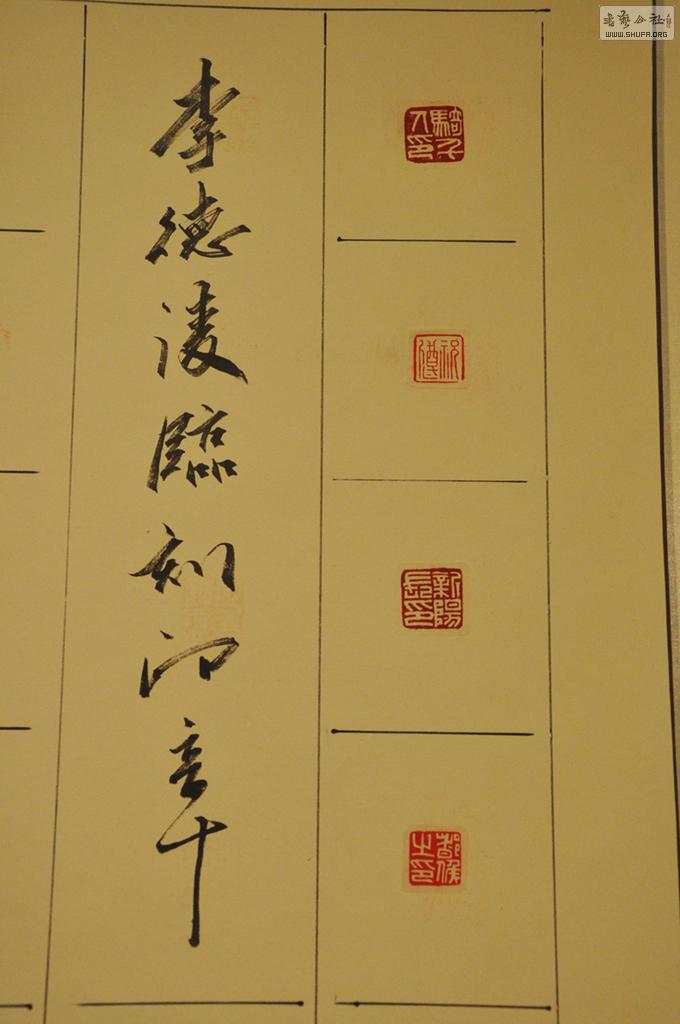 書藝公社
WWW.SHUFA.ORG
騎千
人印
新陽
長印
都候
之印
李德凌臨刻印章